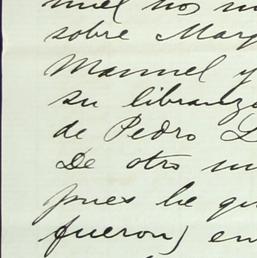 nos
sobre Marg
Manuel y
su libranza
de Pedro L
De otro
pues he qu
fueron) en